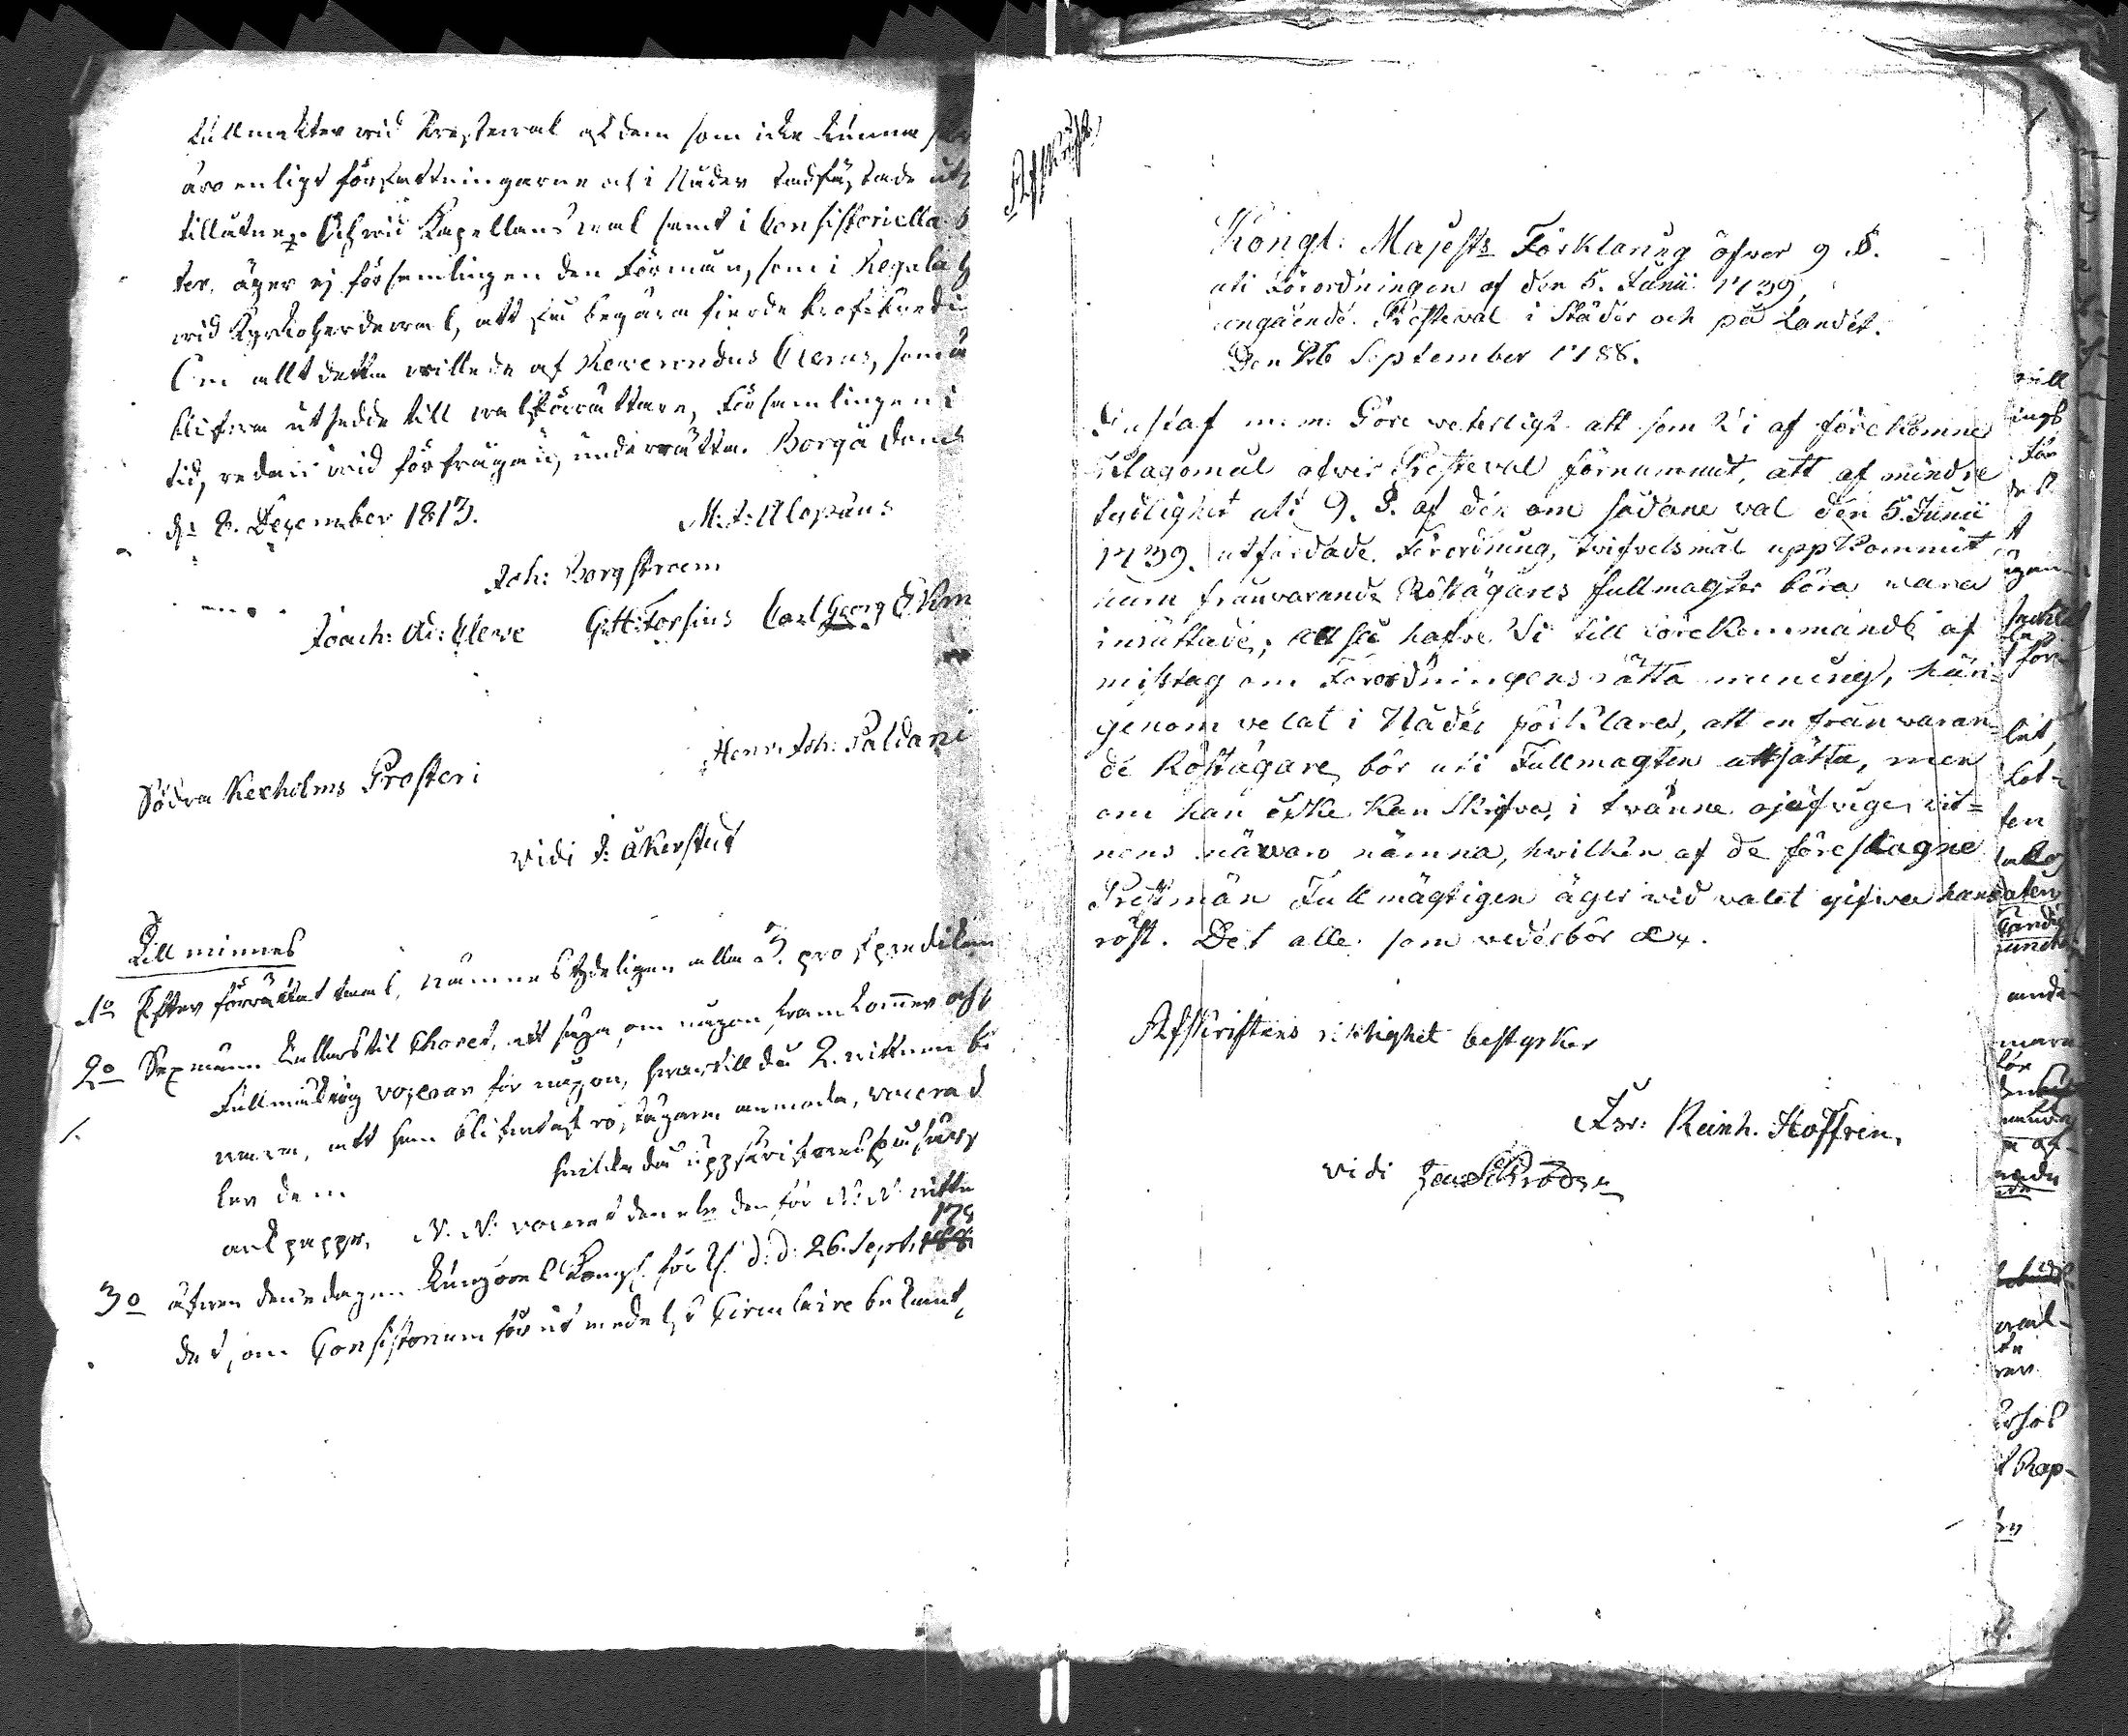 fullmakter wid Prestewal af dem som icke kunna
äro enligt författningarne och i Nåder stadfästade
tillåtne. Och wid Kapellans wal samt i Consistoriella
ter, äger ej församlingen den förmån, som i Regala
wid Kyrkoherdewal, att få begära fierde Profpredi
Om allt detta wille de af Reverendus Clerus, som
blifwa utsedde till walförrättare, Församlingen i
tid, redan wid förfrågan, underrätta. Borgå Dom
d: 8. December 1813.
M: J: Alopæus
Joh: Borgstroem
Joach: Ad: Cleve G: H: Forsius Carl Georg Ekm
Henr: Joh: Paldani
Södra Kexholms Prosteri
vidi J: Åkerstedt
Till minnes
1o Efter förrättat wal, nämnes tydeligen alla 3. pro
2o Sexmänn kallas til Choret, att säga, om någon framkommer och
Fullmäktig voterar för någon, hwartill då 2. wittnen
wara, att han blifwit af röstägaren anmodad, votera
ler dem hwilka då uppskrifwas på särs
ark papper. N. N. voterat den eler den för N: N. witt
178
3o äfwen denne dagen kungöres Kongl. förkl. d: d: 26. Sept.
det, om Consistorium förut medelst Circulaire bekant
Afskrift
Kongl: Majests Förklaring öfver 9 §.
uti Förordningen af den 5. Junii 1739,
angående Presteval i Städer och på Landet.
Den 26 September 1788.
Gustaf m. m. Göre weterligt att som Vi af förekomne
klagomål öfver Presteval förnummit, att af mindre
tydlighet uti 9. §. af den om sådane val den 5. Junii
1739. utfärdade Förordning, twifvelsmål uppkommit
huru frånvarande Röstägares fullmagter böra wara
inrättade; altså hafve Vi till förekommande af
misstag om Förordningens rätta mening, här-
genom velat i Nåder förklara, att en frånwaran-
de Röstägare bör uti Fullmagten utsätta, men
om han icke kan skrifva, i tvänne ojäfvige wit-
nens närwaro nämna, hwilken af de föreslagne
Prestmän Fullmägtigen äger wid valet gifwa hans
röst. Det alle som wederbör &c.
Afskriftens riktighet bestyrker
Fsr: Reinh. Hoffren.
vidi